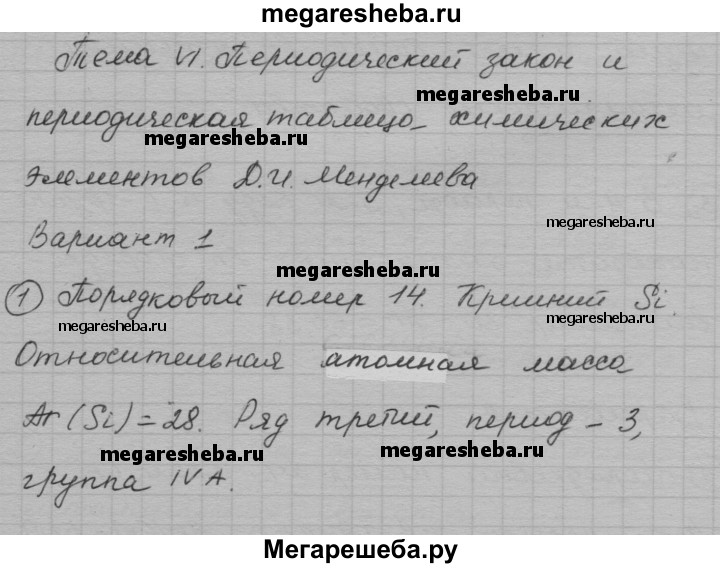 megaresheba.ru
Тема VI. Периодический закон и
megaresheba.ru
периодическая таблица химических
megaresheba.ru
элементов Д.И. Менделеева
megaresheba.ru
Вариант 1
megaresheba.ru
1 Порядковый номер 14. Кремний Si.
megaresheba.ru
megaresheba.ru
Относительная атомная масса
Ar (Si) = 28. Ряд третий, период – 3,
megaresheba.ru
megaresheba.ru
группа IV A.
Мегарешеба.ру